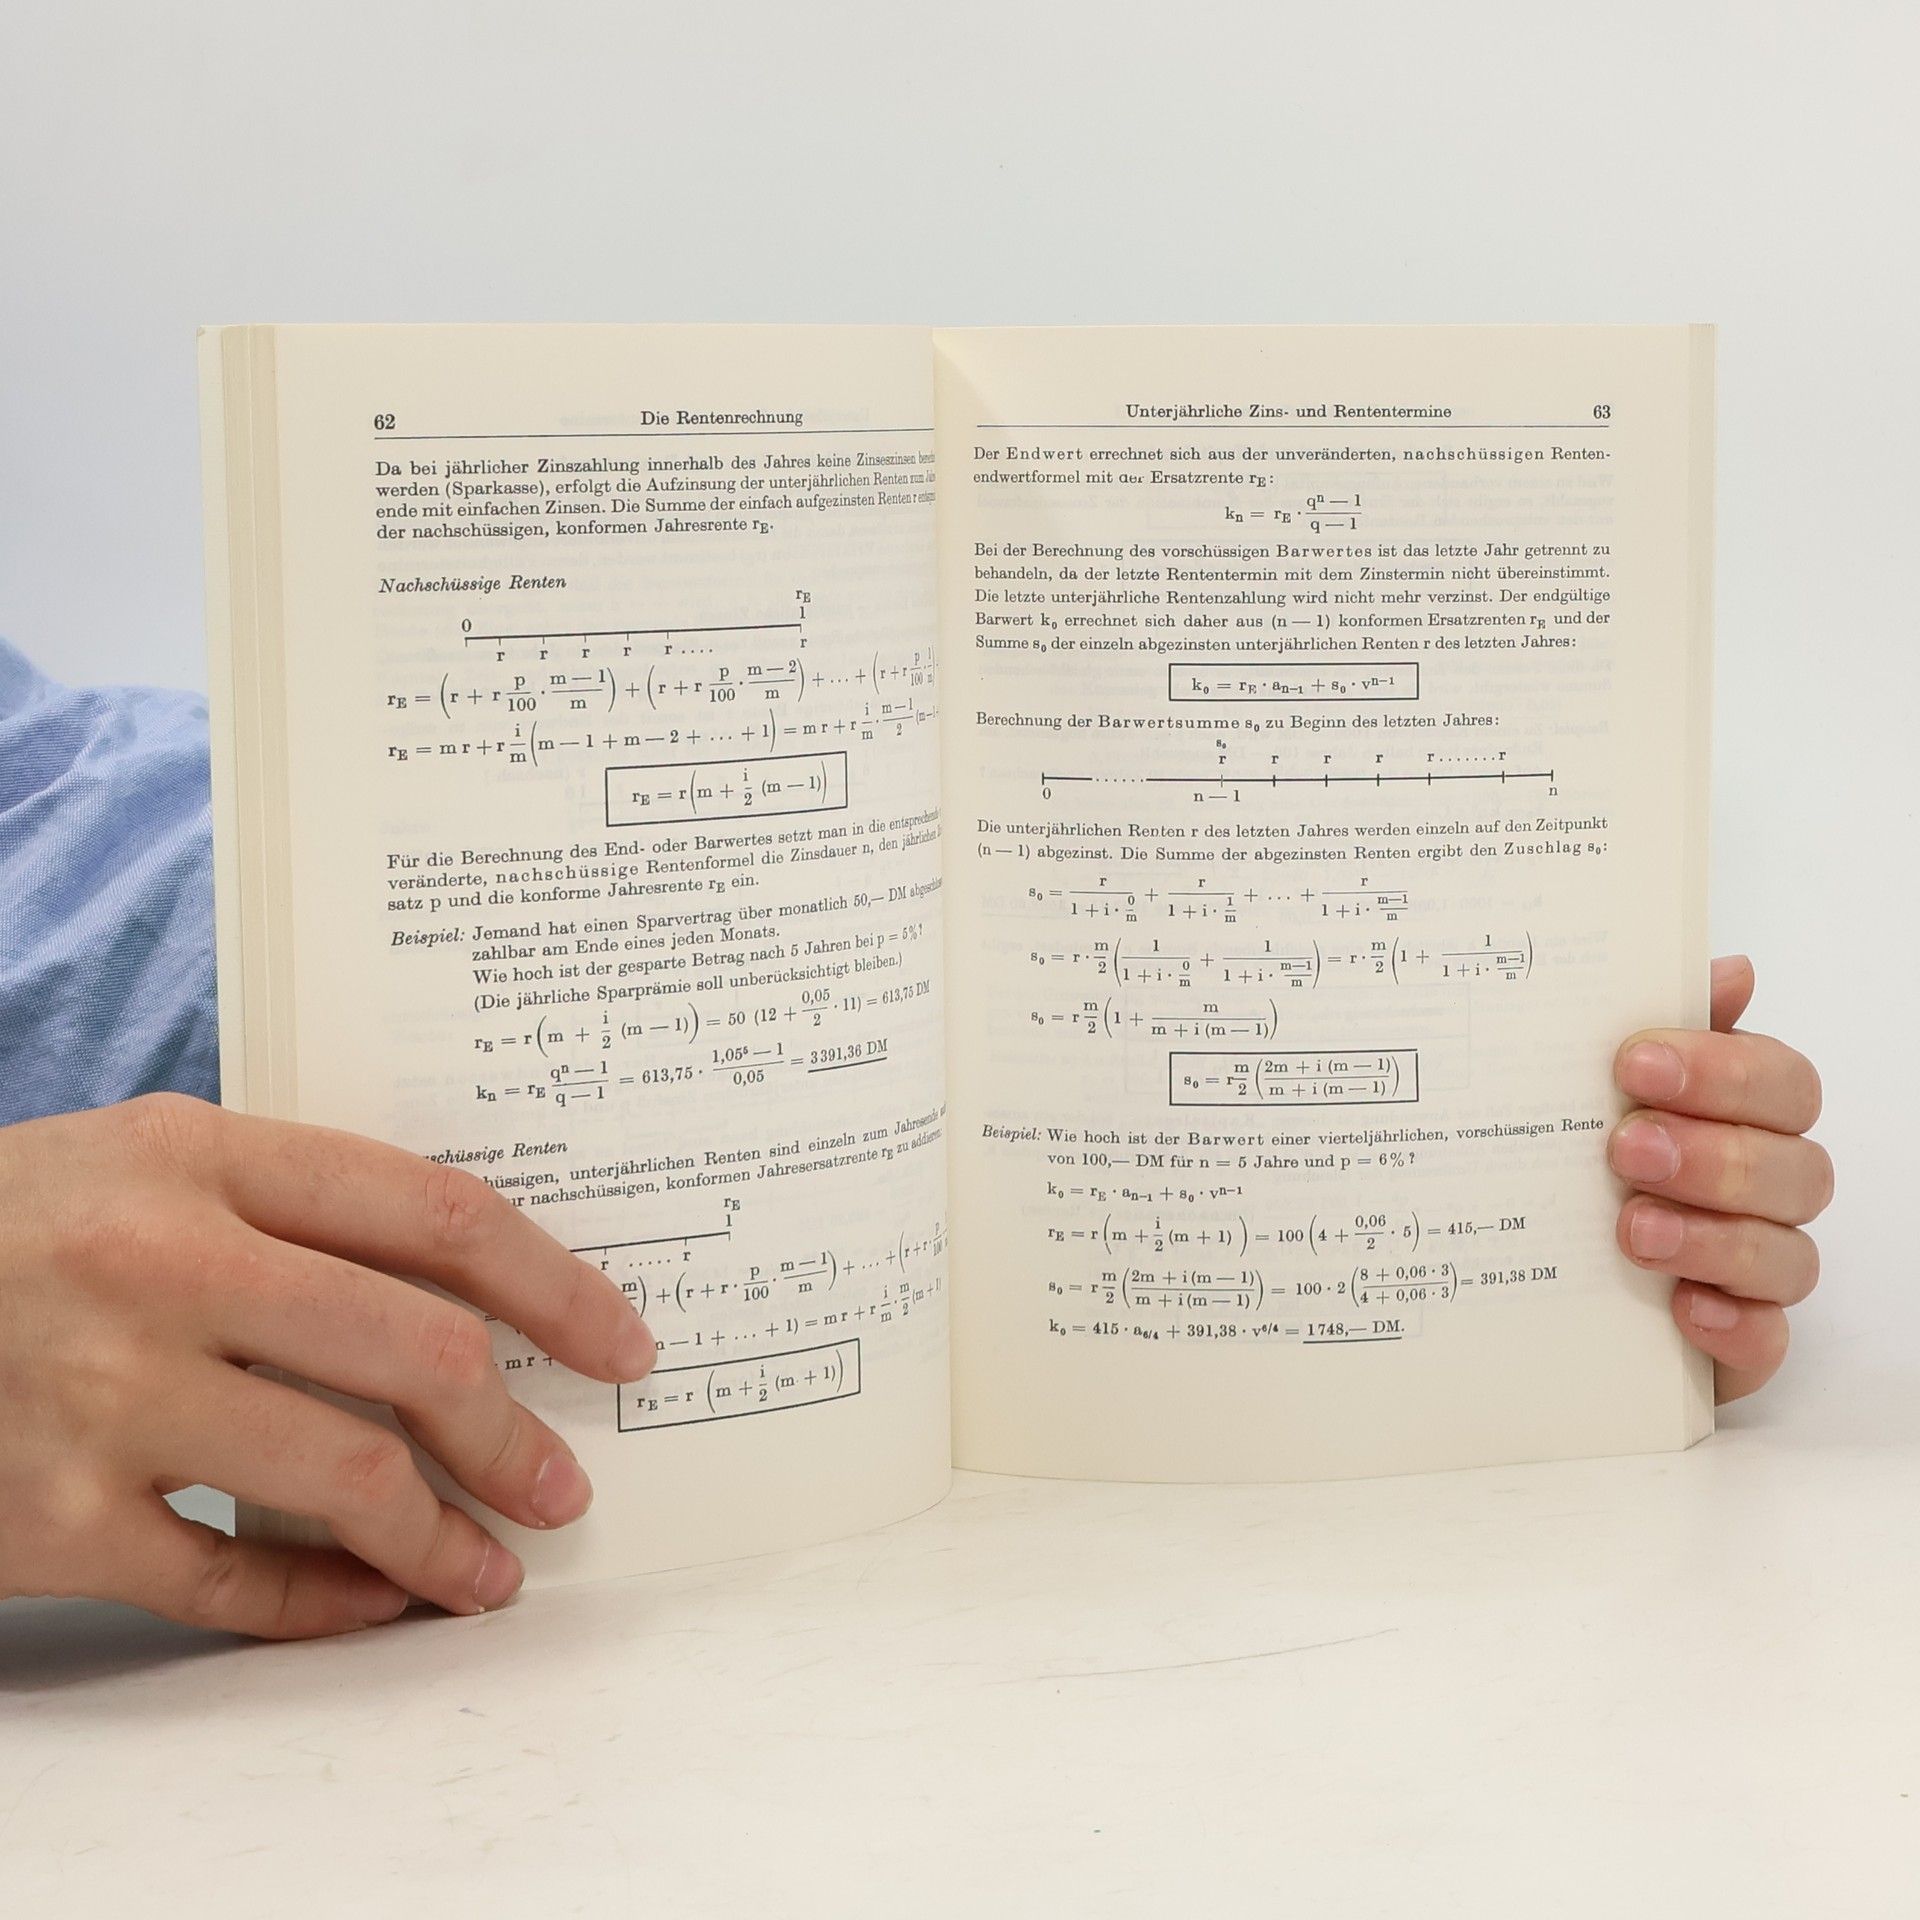 62 Die Rentenrechnung
Da bei jährlicher Zinszahlung innerhalb des Jahres keine Zinseszinsen
werden (Sparkasse), erfolgt die Aufzinsung der unterjährlichen Renten zum
ende mit einfachen Zinsen. Die Summe der einfach aufgezinsten Renten r
der nachschüssigen, konformen Jahresrente rE.
Nachschüssige Renten
rE
0 1
r r r r r .... r
rE = (r + r p/100 · (m — 1)/m) + (r + r p/100 · (m — 2)/m) + ... + (r + r p/100 · 1/m)
rE = m r + r i/m (m — 1 + m — 2 + ... + 1) = m r + r i/m · (m — 1)/2
rE = r (m + i/2 (m — 1))
Für die Berechnung des End- oder Barwertes setzt man in die
veränderte, nachschüssige Rentenformel die Zinsdauer n, den jährlichen
satz p und die konforme Jahresrente rE ein.
Beispiel: Jemand hat einen Sparvertrag über monatlich 50,— DM
zahlbar am Ende eines jeden Monats.
Wie hoch ist der gesparte Betrag nach 5 Jahren bei p = 5%?
(Die jährliche Sparprämie soll unberücksichtigt bleiben.)
rE = r (m + i/2 (m — 1)) = 50 (12 + 0,05/2 · 11) = 613,75 DM
kn = rE (qⁿ — 1)/(q — 1) = 613,75 · (1,05⁵ — 1)/0,05 = 3391,36 DM
schüssige Renten
unterjährlichen Renten sind einzeln zum Jahresende
nachschüssigen, konformen Jahresersatzrente rE zu addieren:
rE
1
r ..... r
m) + (r + r · p/100 · (m — 1)/m) + ... + (r + r · p/100
— 1 + ... + 1) = m r + r i/m · m/2 (m + 1)
m r +
rE = r (m + i/2 (m + 1))
Unterjährliche Zins- und Rententermine 63
Der Endwert errechnet sich aus der unveränderten, nachschüssigen Renten-
endwertformel mit der Ersatzrente rE:
kn = rE · (qⁿ — 1)/(q — 1)
Bei der Berechnung des vorschüssigen Barwertes ist das letzte Jahr getrennt zu
behandeln, da der letzte Rententermin mit dem Zinstermin nicht übereinstimmt.
Die letzte unterjährliche Rentenzahlung wird nicht mehr verzinst. Der endgültige
Barwert k₀ errechnet sich daher aus (n — 1) konformen Ersatzrenten rE und der
Summe s₀ der einzeln abgezinsten unterjährlichen Renten r des letzten Jahres:
k₀ = rE · aₙ₋₁ + s₀ · vⁿ⁻¹
Berechnung der Barwertsumme s₀ zu Beginn des letzten Jahres:
s₀
r r r r r ........ r
0 n — 1 n
Die unterjährlichen Renten r des letzten Jahres werden einzeln auf den Zeitpunkt
(n — 1) abgezinst. Die Summe der abgezinsten Renten ergibt den Zuschlag s₀:
s₀ = r/(1 + i · 0/m) + r/(1 + i · 1/m) + ... + r/(1 + i · (m—1)/m)
s₀ = r · m/2 (1/(1 + i · 0/m) + 1/(1 + i · (m—1)/m)) = r · m/2 (1 + 1/(1 + i · (m—1)/m))
s₀ = r m/2 (1 + m/(m + i (m — 1)))
s₀ = r m/2 ((2m + i (m — 1))/(m + i (m — 1)))
Beispiel: Wie hoch ist der Barwert einer vierteljährlichen, vorschüssigen Rente
von 100,— DM für n = 5 Jahre und p = 6%?
k₀ = rE · aₙ₋₁ + s₀ · vⁿ⁻¹
rE = r (m + i/2 (m + 1)) = 100 (4 + 0,06/2 · 5) = 415,— DM
s₀ = r m/2 ((2m + i (m — 1))/(m + i (m — 1))) = 100 · 2 ((8 + 0,06 · 3)/(4 + 0,06 · 3)) = 391,38 DM
k₀ = 415 · a₆/₄ + 391,38 · v⁶/⁴ = 1748,— DM.